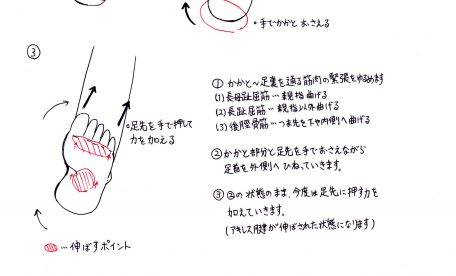 ・手でかかとおさえる
③
・足先を手で押して
力を加える
…伸ばすポイント
① かかと～足裏を通る筋肉の緊張をゆるめます
(1)長母趾屈筋…親指曲げる
(2)長趾屈筋…親指以外曲げる
(3)後脛骨筋…つま先を下や内側へ曲げる
② かかと部分と足先を手でおさえながら
足首を外側へひねっていきます。
③ ②の状態のまま、今度は足先に押す力を
加えていきます。
(アキレス腱が伸ばされた状態になります)